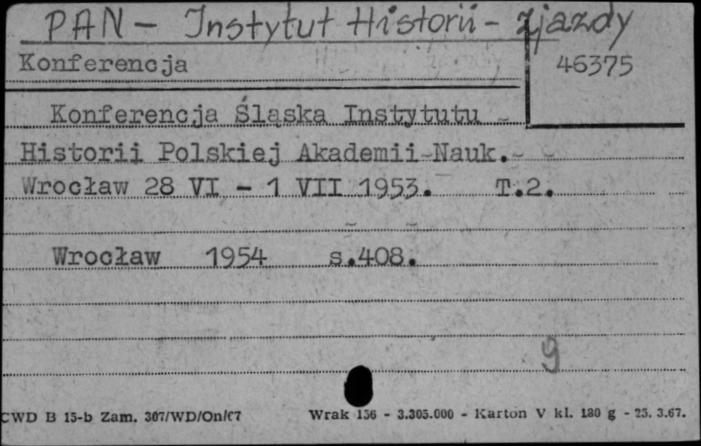 PAN - Instytut Historii - zjazdy
Konferencja
46375
Konferencja Śląska Instytutu
Historii Polskiej Akademii Nauk.
Wrocław 28 VI - 1 VII 1953. T.2.
Wrocław 1954 s.408.
g
CWD B 15-b Zam. 307/WD/On/67 Wrak 156 - 3.305.000 - Karton V kl. 180 g - 25. 3.67.